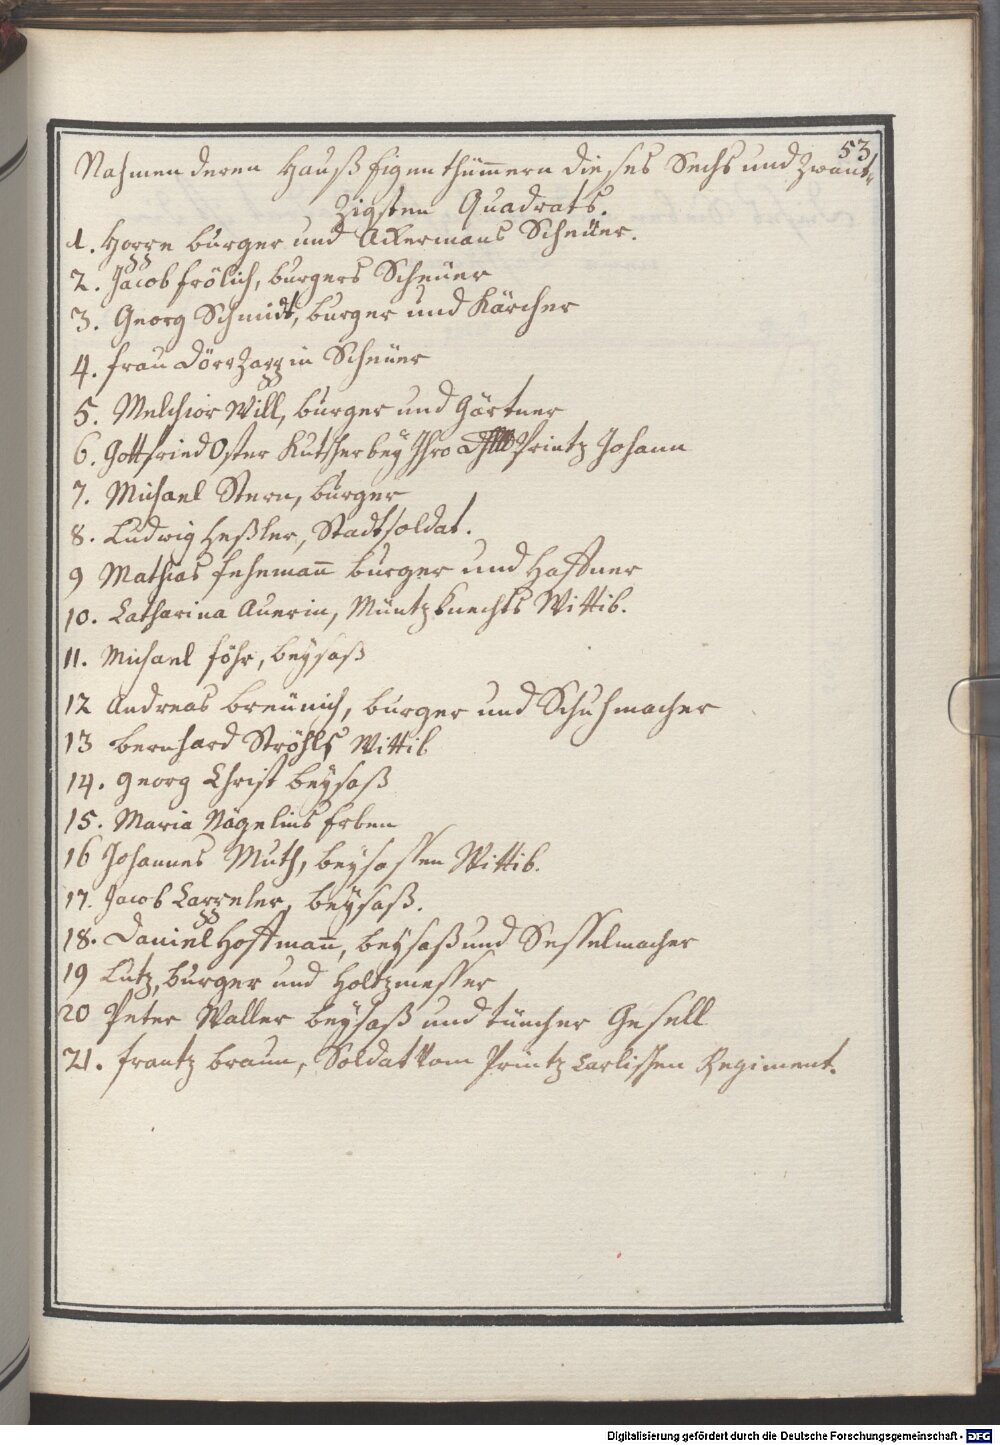 53
Nahmen deren Hauß Eigenthümmern dieses Sechs und Zwant-
Zigsten Quadrats.
1. Hoppe burger und Ackermans Scheüer.
2. Jacob Frölich, burgers Scheuer
3. Georg Schmidt, burger und Kärcher
4. Frau Dörrzappin Scheüer
5. Melchior Will, burger und Gärtner
6. Gottfried Oster Kutscher bey Ihro Printz Johann
7. Michael Stern, burger
8. Ludwig Heßler, Stadtsoldat.
9 Mathias Fehemann burger und Haffner
10. Catharina Auerin, Müntzknechts Wittib.
11. Michael Föhr, beysaß
12 Andreas Breünich, burger und Schuhmacher
13 bernhard Ströhls Wittib
14. Georg Christ beysaß
15. Maria Nägelins Erben
16 Johannes Muth, beysassen Wittib.
17. Jacob Cappeler, beysaß.
18. Daniel Hoffmann, beysaß und Sesselmacher
19 Lutz, burger und Holtzmesser
20 Peter Waller beysaß und tüncher Gesell
21. Frantz braun, Soldat vom Printz Carlischen Regiment.
Digitalisierung gefördert durch die Deutsche Forschungsgemeinschaft - DFG